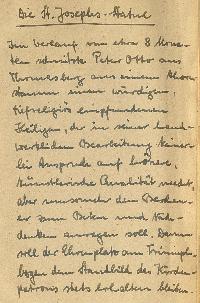 Die St. Josephs-Statue
Im Verlauf von etwa 8 Mona-
ten schnitzte Peter Otto aus
Thomasberg aus einem Ahorn-
stamm einen würdigen,
tiefreligiös empfundenen
Heiligen, der in seiner hand-
werklichen Bearbeitung keiner-
lei Anspruch auf höhere,
künstlerische Qualität
aber umsomehr den Beschau-
er zum Beten und Nach-
denken anregen soll. Darum
soll der Ehrenplatz am Triumph-
bogen dem Standbild des Kirchen-
patrons stets erhalten bleiben.